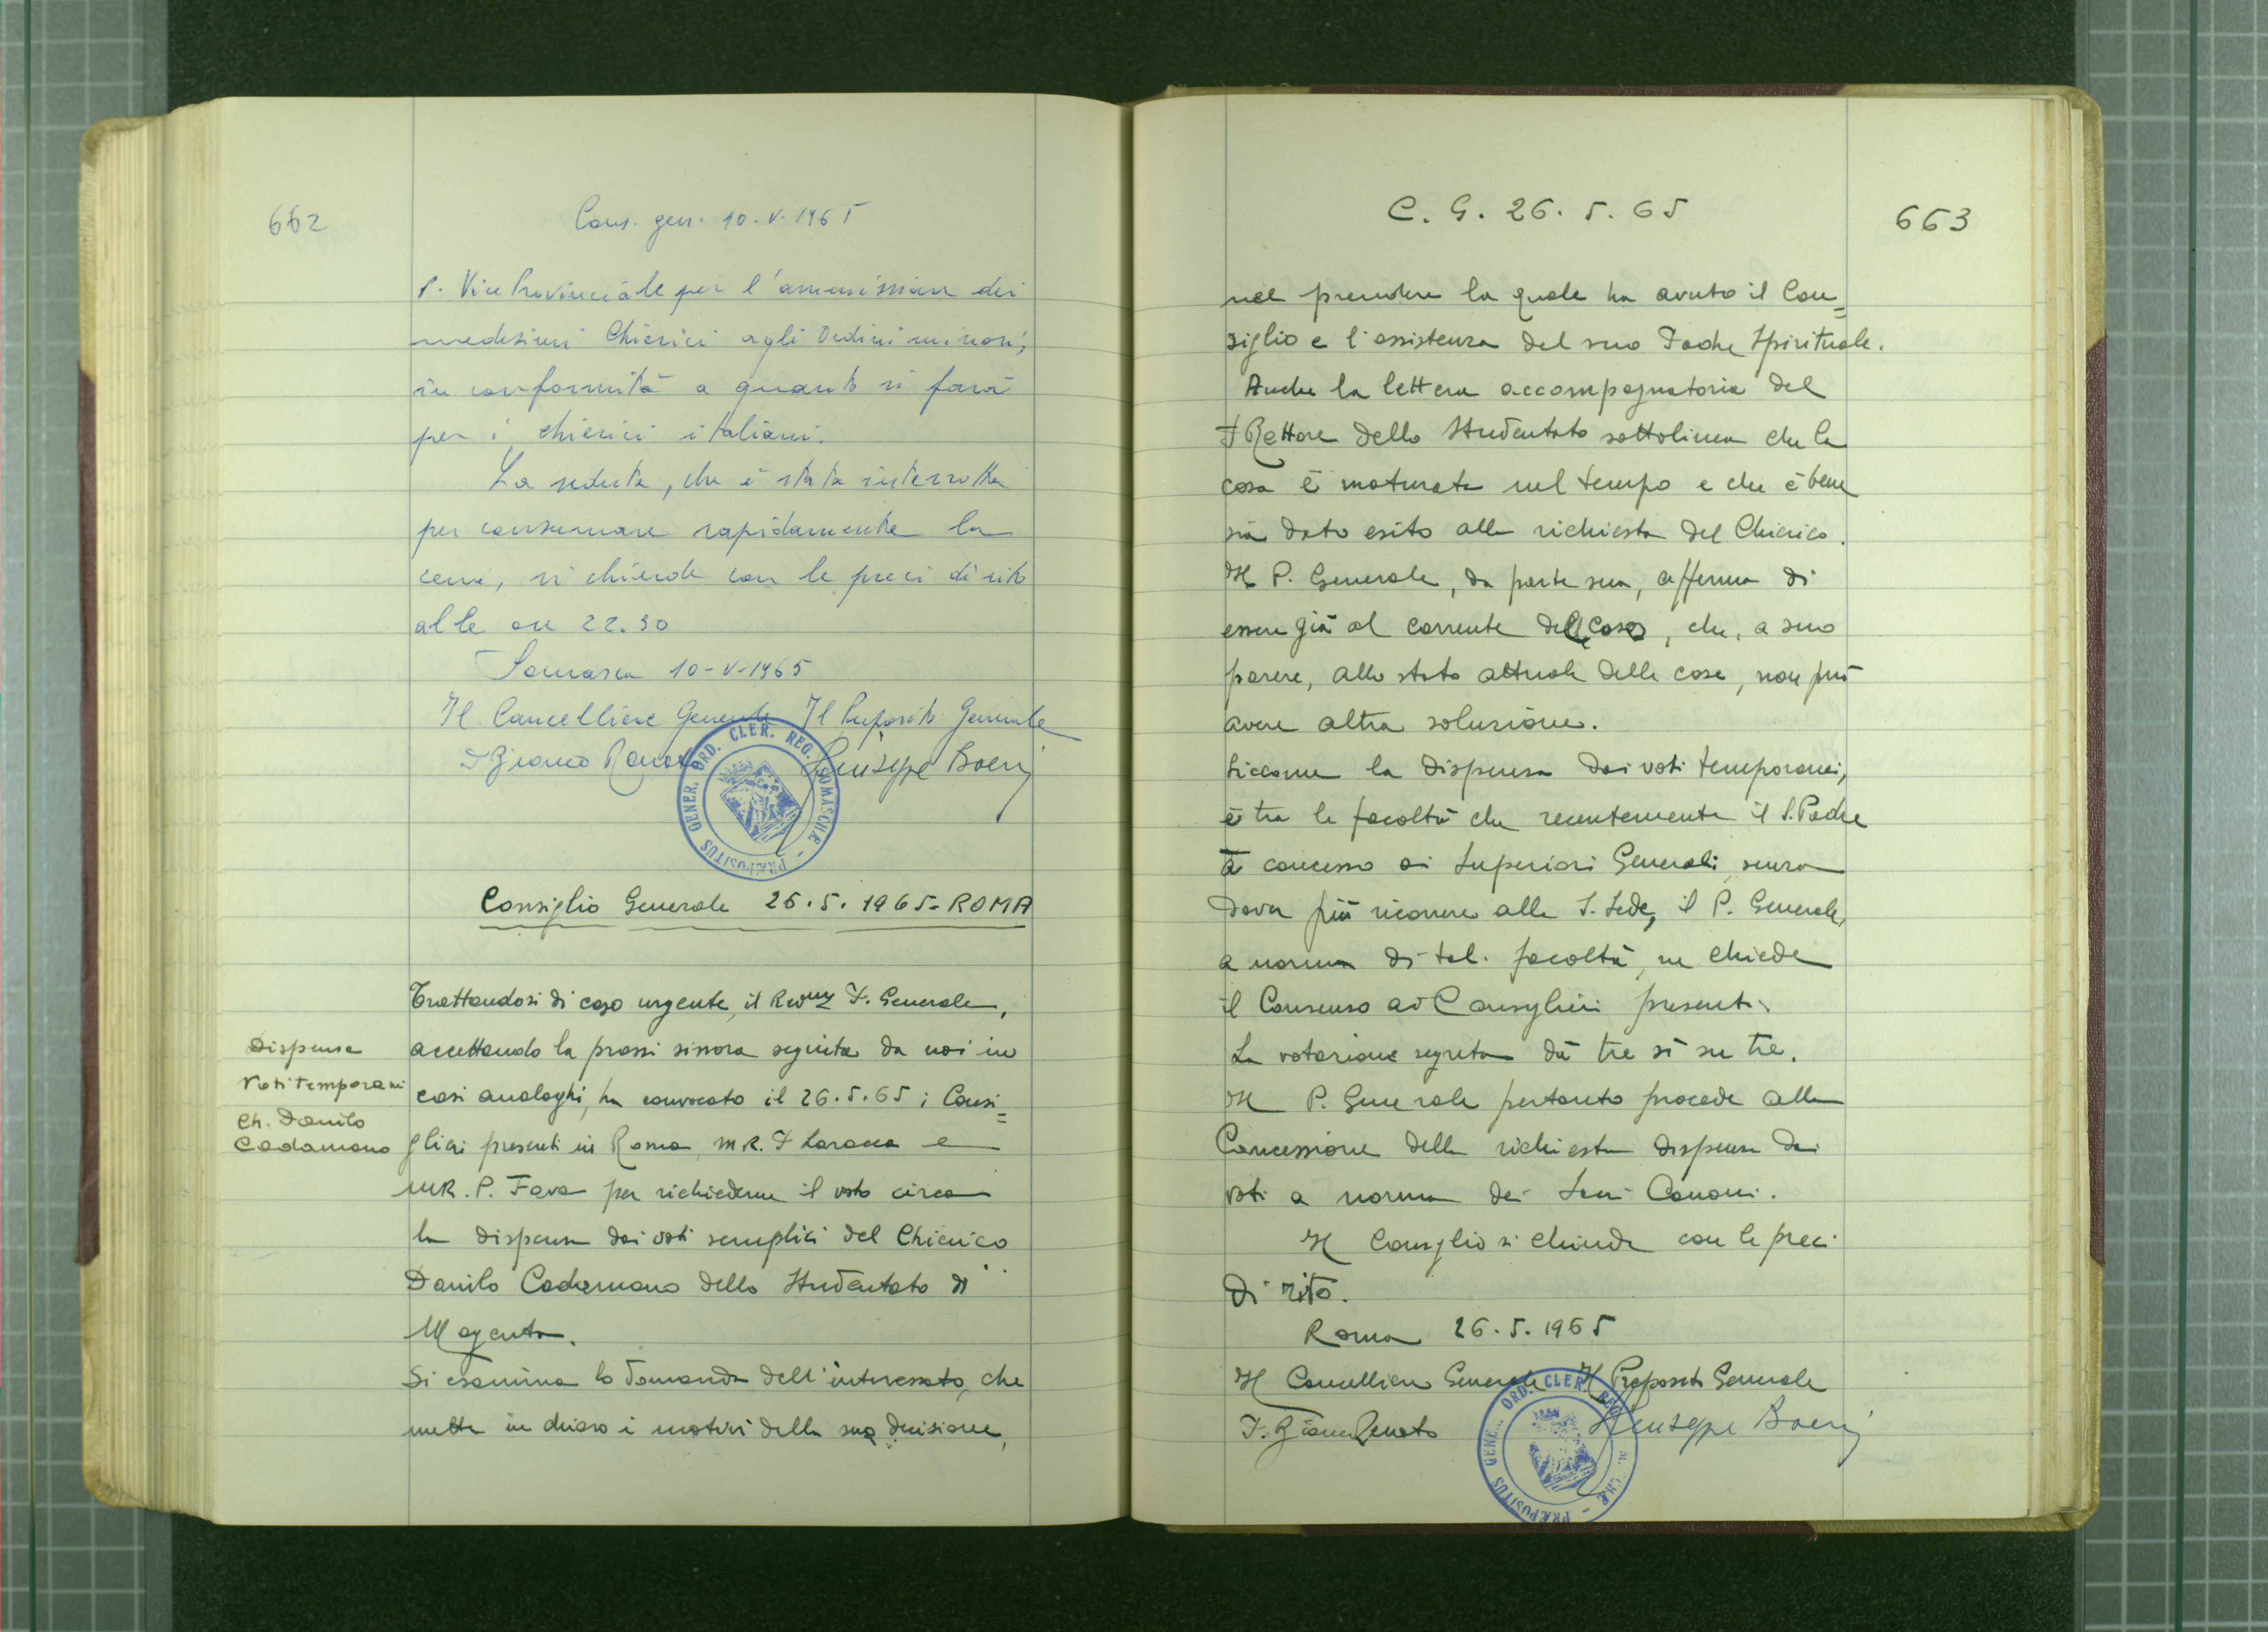 662
Cons. gen. 10-V-1965
P. Vice Provinciale per l'ammissione dei
medesimi Chierici agli Ordini minori,
in conformità a quanto si farà
per i chierici italiani.
La seduta, che è stata interrotta
per consumare rapidamente la
cena, si chiude con le preci di rito
alle ore 22.30
Somasca 10-V-1965
Il Cancelliere Generale Il Preposito Generale
P. Bianco Renato Giuseppe Boeri
PRÆPOSITUS GENER. ORD. CLER. REG. SOMASCHÆ
Consiglio Generale 26.5.1965-ROMA
Dispensa
Voti temporanei
Ch. Danilo
Cadamano
Trattandosi di caso urgente, il Rev.mo P. Generale,
accettando la prassi sinora seguita da noi in
casi analoghi, ha convocato il 26.5.65 i Consi=
glieri presenti in Roma, M.R. P. Laracca e
M.R. P. Fava per richiederne il voto circa
la dispensa dai voti semplici del Chierico
Danilo Cadamano dello Studentato di
Magenta.
Si esamina la domanda dell'interessato, che
mette in chiaro i motivi della sua decisione,
C. G. 26.5.65
663
nel prendere la quale ha avuto il Con=
siglio e l'assistenza del suo Padre Spirituale.
Anche la lettera accompagnatoria del
P. Rettore dello Studentato sottolinea che la
cosa è maturata nel tempo e che è bene
sia dato esito alla richiesta del Chierico.
Il P. Generale, da parte sua, afferma di
essere già al corrente del caso, che, a suo
parere, allo stato attuale delle cose, non può
avere altra soluzione.
Siccome la dispensa dai voti temporanei,
è tra le facoltà che recentemente il S. Padre
à concesso ai Superiori Generali, senza
dover più ricorrere alla S. Sede, il P. Generale,
a norma di tal. facoltà, ne chiede
il Consenso ai Consiglieri presenti.
La votazione segreta dà tre sì su tre.
Il P. Generale pertanto procede alla
Concessione della richiesta dispensa dai
voti a norma dei Sacri Canoni.
Il Consiglio si chiude con le preci
di rito.
Roma 26.5.1965
Il Cancelliere Generale Il Preposito Generale
P. Bianco Renato Giuseppe Boeri
PRÆPOSITUS GENE. ORD. CLER. REG.